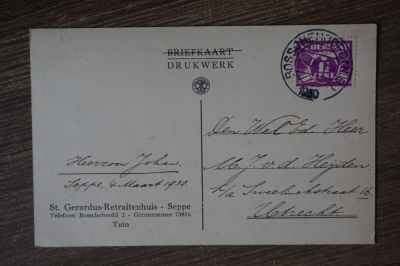 BRIEFKAART
DRUKWERK
NEDERLAND
1½
CENT
1930
Den Wel Ed. Heer
Mr. J. v. d. Heyden
p/a Sweelinckstraat 16
Utrecht
Heeroom Johan.
Seppe, 4 Maart 1930.
St. Gerardus-Retraitenhuis - Seppe
Telefoon Bosschehoofd 2 - Gironummer 73816
Tuin